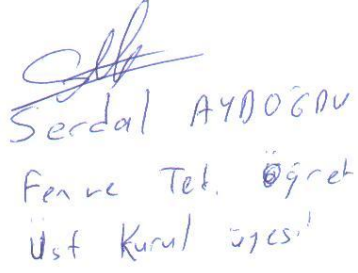 Serdal AYDOĞDU
Fen ve Tek. Öğret
Üst Kurul üyesi